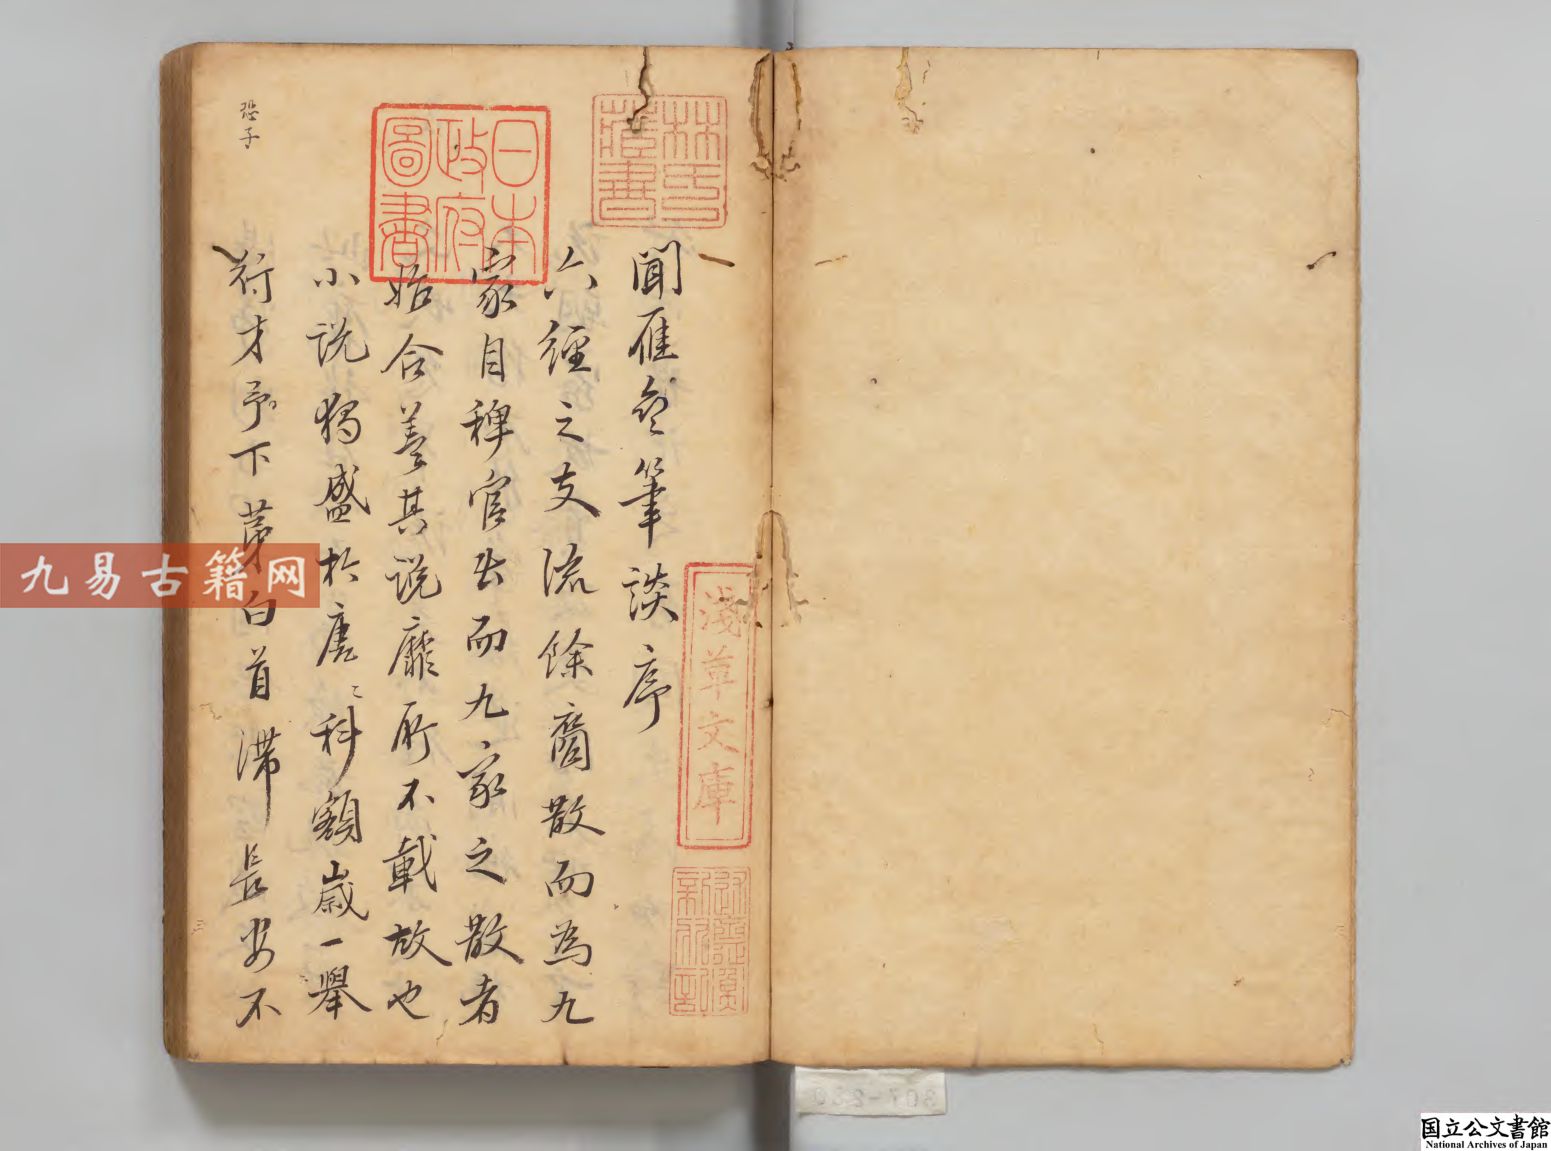 聞雁齋筆談序
六經之支流餘裔散而為九
家自稗官出而九家之散者
始合蓋其說靡所不載故也
小說獨盛於唐〻科額歲一舉
符才予下第白首滯長安不
恐子
林氏
藏書
日本
政府
圖書
淺草文庫
九易古籍网
307-280
国立公文書館
National Archives of Japan